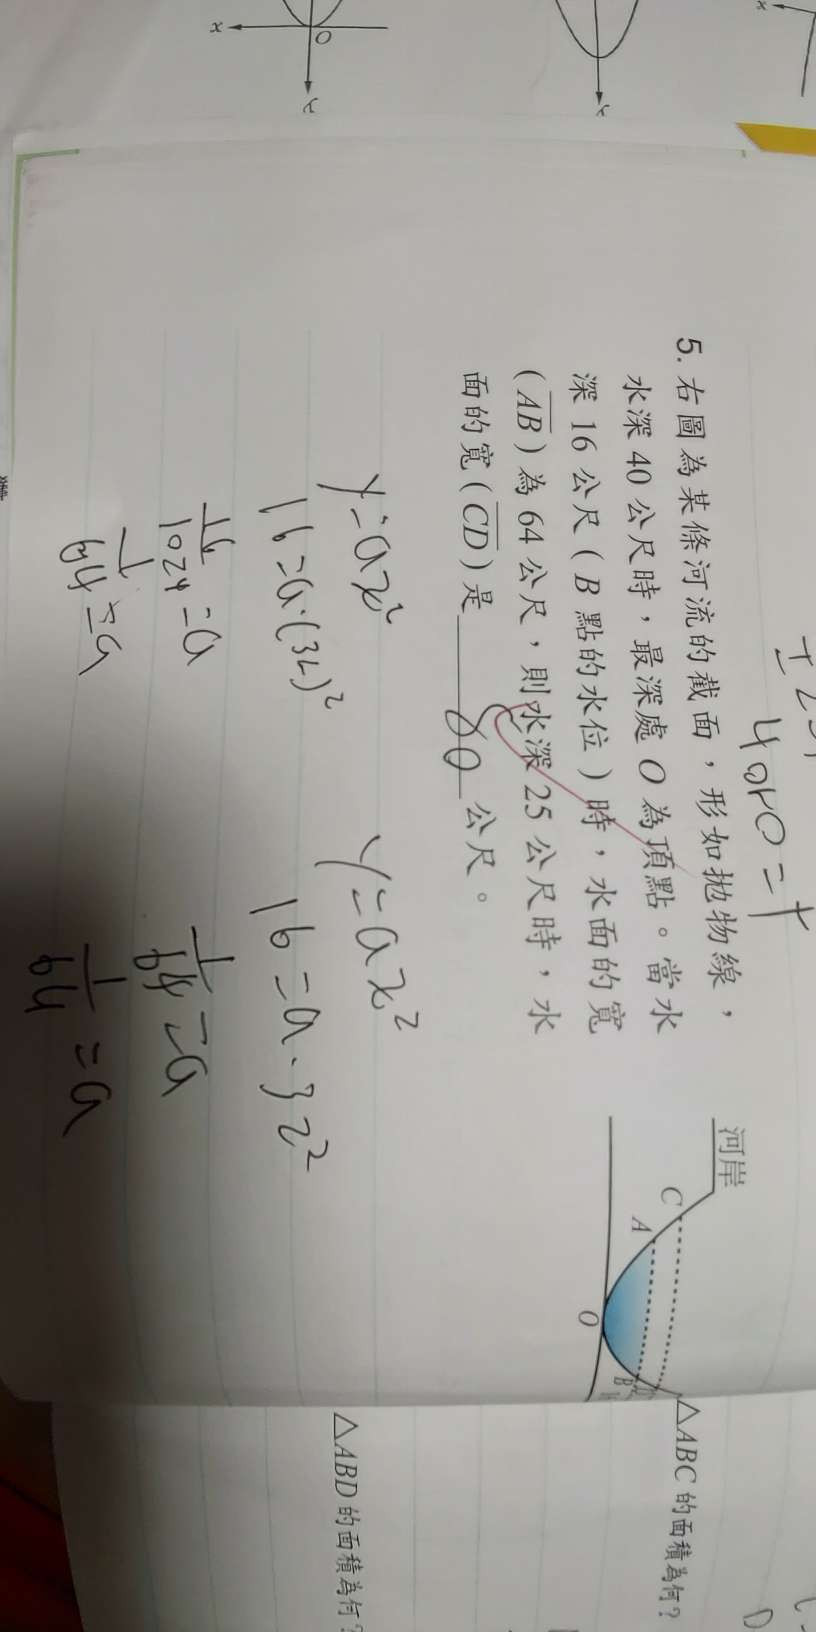 5. 右圖為某條河流的截面，形如拋物線，
水深 40 公尺時，最深處 O 為頂點。當水
深 16 公尺（B 點的水位）時，水面的寬
（AB）為 64 公尺，則水深 25 公尺時，水
面的寬（CD）是 80 公尺。
河岸
C
A
O
B
y=ax²
16=a·(32)²
16/1024=a
1/64=a
y=ax²
16=a·32²
1/64=a
1/64=a
x
O
y
y
x
△ABC 的面積為何？
△ABD 的面積為何？
D